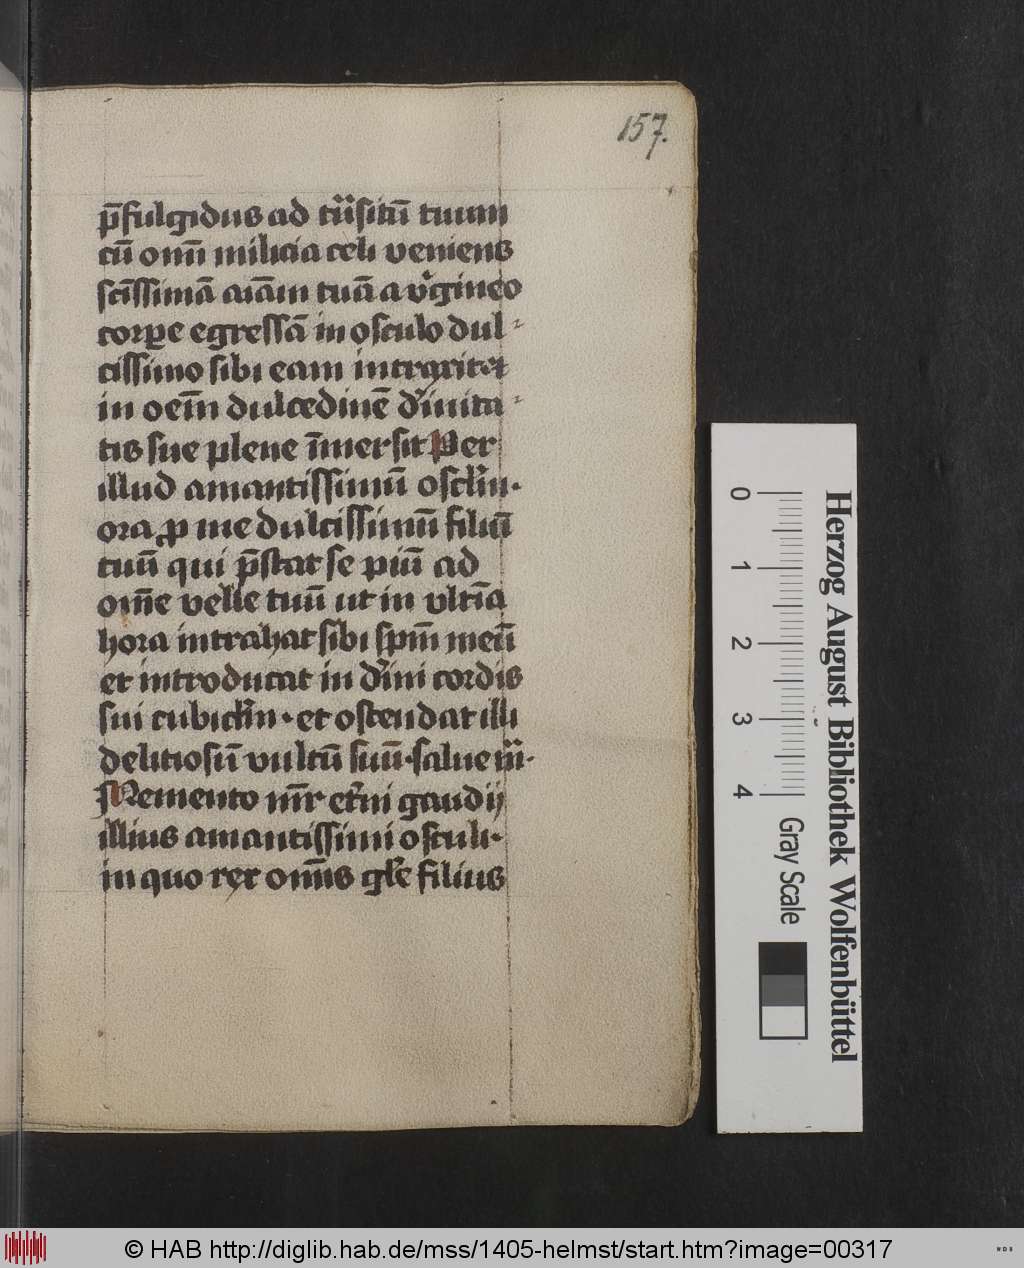 157.
p̄fulgidus ad tͥnsitū tuum
cū om̄i milicia celi veniens
scīssimā aīam tuā a vͥgineo
corꝑe egressā in osculo dul-
cissimo sibi eam intraxit et
in oēm dulcedinē dͥuinita-
tis sue plene īmersit Per
illud amantissimū osclm̄·
ora ꝓ me dulcissimū filiū
tuū qui p̄stat se piū ad
om̄e velle tuū ut in vltīa
hora intrahat sibi sp̄m meū
et introducat in dͥuini cordis
sui cubiclm̄· et ostendat illi
delitiosū vultū suū· salue mͥ·
Memento mr̄ et̄ni gaudij
illius amantissimi osculi·
in quo rex om̄is gl̄e filius
Herzog August Bibliothek Wolfenbüttel
0 1 2 3 4
Gray Scale
© HAB http://diglib.hab.de/mss/1405-helmst/start.htm?image=00317